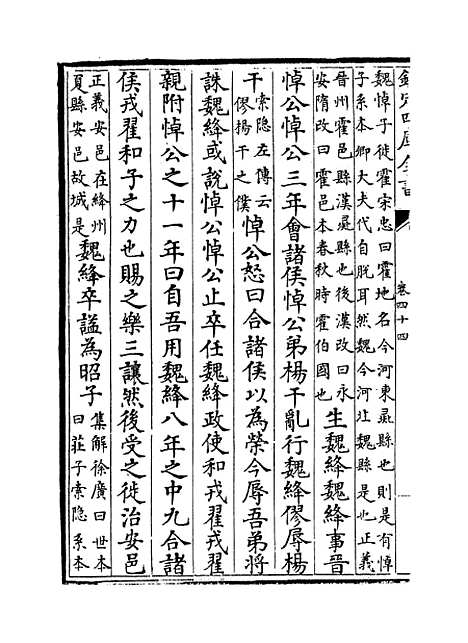 欽定四庫全書
卷四十四
魏悼子徙霍宋忠曰霍地名今河東彘縣也則是有悼
子系本卿大夫代自脫耳然魏今河北魏縣是也正義
晉州霍邑縣漢彘縣也後漢改曰永
安隋改曰霍邑本春秋時霍伯國也
生魏絳魏絳事晉
悼公悼公三年會諸侯悼公弟楊干亂行魏絳僇辱楊
干
索隱左傳云
僇楊干之僕
悼公怒曰合諸侯以為榮今辱吾弟將
誅魏絳或說悼公悼公止卒任魏絳政使和戎翟戎翟
親附悼公之十一年曰自吾用魏絳八年之中九合諸
侯戎翟和子之力也賜之樂三讓然後受之徙治安邑
正義安邑在絳州
夏縣安邑故城是
魏絳卒謚為昭子
集解徐廣曰世本
曰莊子索隱系本